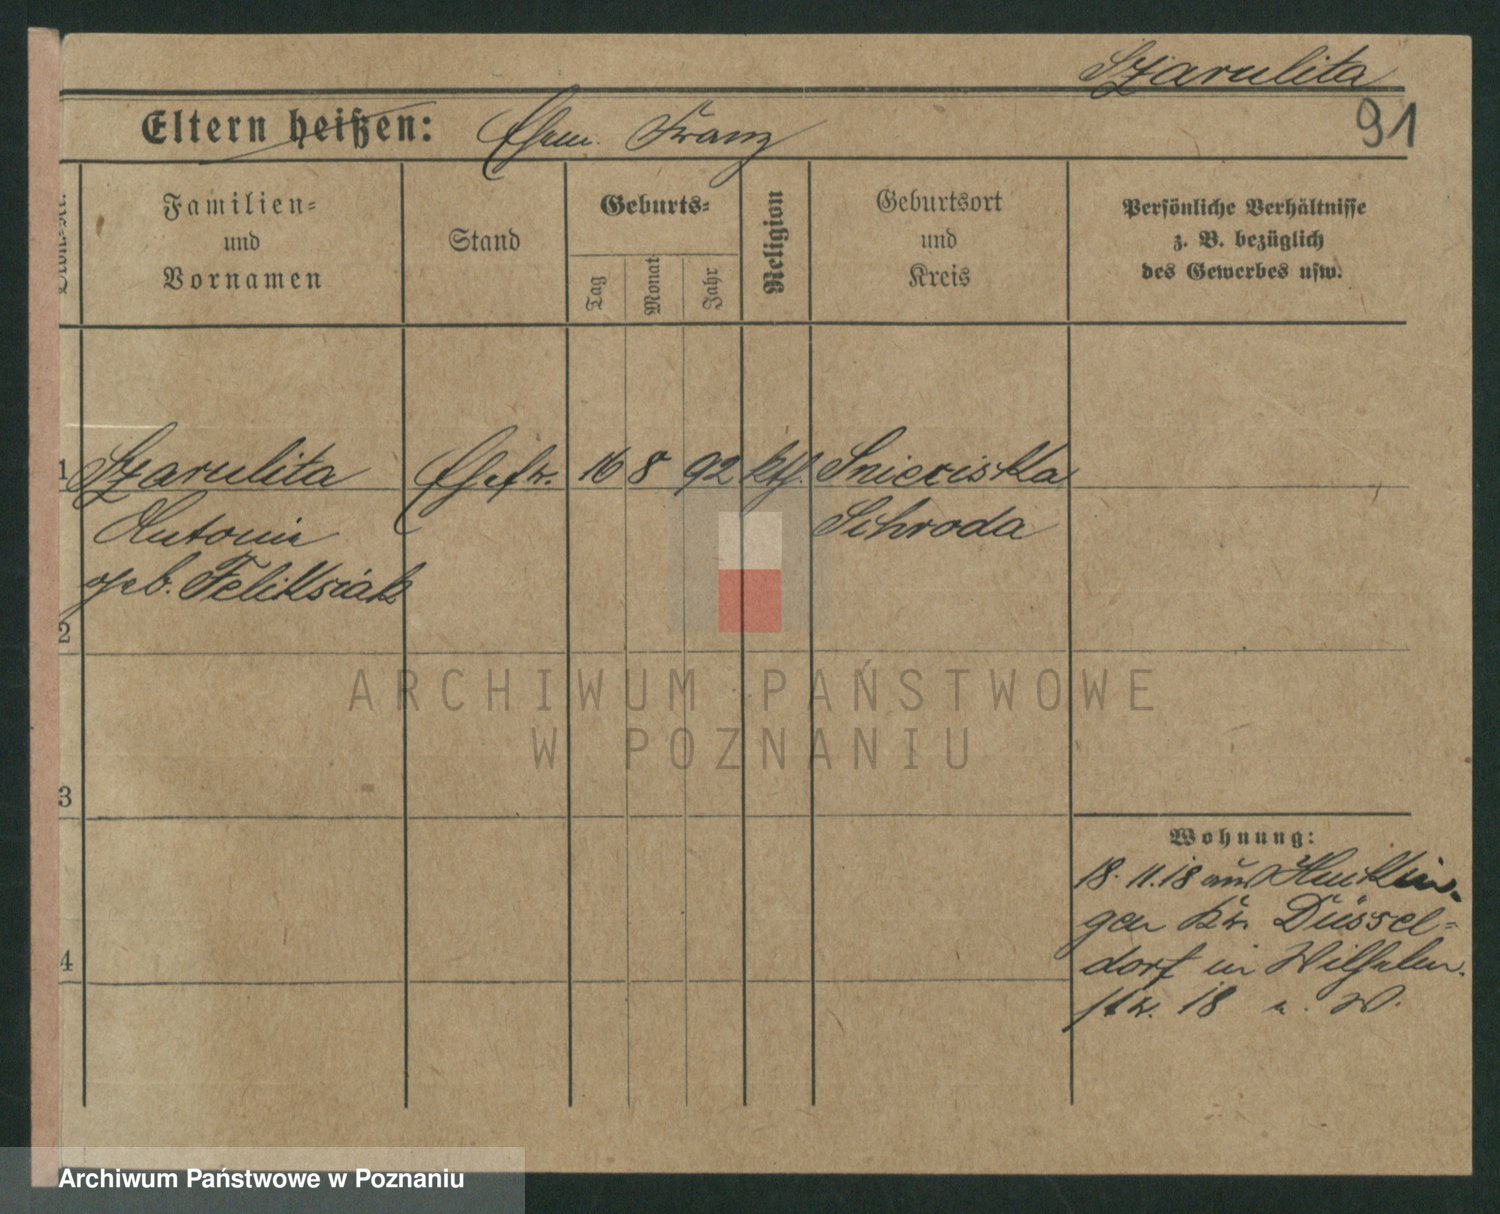 Szarulita
91
Eltern heißen: Ehem. Franz
Familien- und Vornamen
Stand
Geburts-
Tag
Monat
Jahr
Religion
Geburtsort und Kreis
Persönliche Verhältnisse z. B. bezüglich des Gewerbes usw.
1 Szarulita Ehefr. 16 8 92 kth. Snieciska
Antonie Schroda
geb. Feliksiak
2
3
4
Wohnung:
18. 11. 18 aus
gen Kr. Düssel-
dorf in Wilhelm
str. 18 n. W.
ARCHIWUM PAŃSTWOWE
W POZNANIU
Archiwum Państwowe w Poznaniu